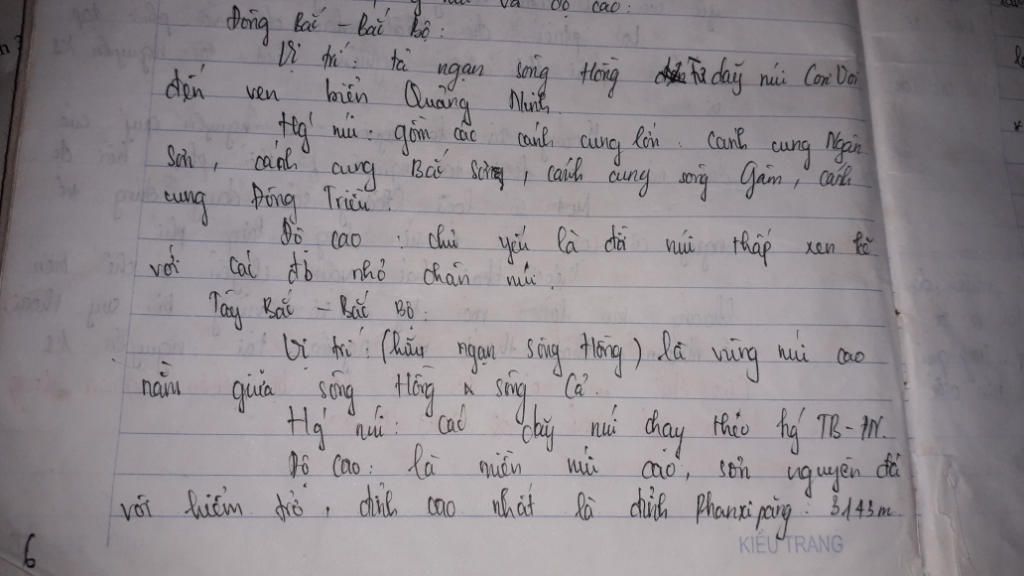 và độ cao:
Đông Bắc – Bắc Bộ:
Vị trí: tả ngạn sông Hồng Từ dãy núi Con Voi
đến ven biển Quảng Ninh
Hg núi: gồm các cánh cung lớn: cánh cung Ngân
Sơn, cánh cung Bắc Sơn, cánh cung sông Gâm, cánh
cung Đông Triều.
Độ cao: chủ yếu là đồi núi thấp xen kẽ
với các đb nhỏ chân núi.
Tây Bắc – Bắc Bộ:
Vị trí: (hữu ngạn sông Hồng) là vùng núi cao
nằm giữa sông Hồng & sông Cả.
Hg núi: các dãy núi chạy theo hg TB-ĐN.
Độ cao: là miền núi cao, sơn nguyên đá
vôi hiểm trở, đỉnh cao nhất là đỉnh Phanxipăng: 3143m
6
KIỀU TRANG